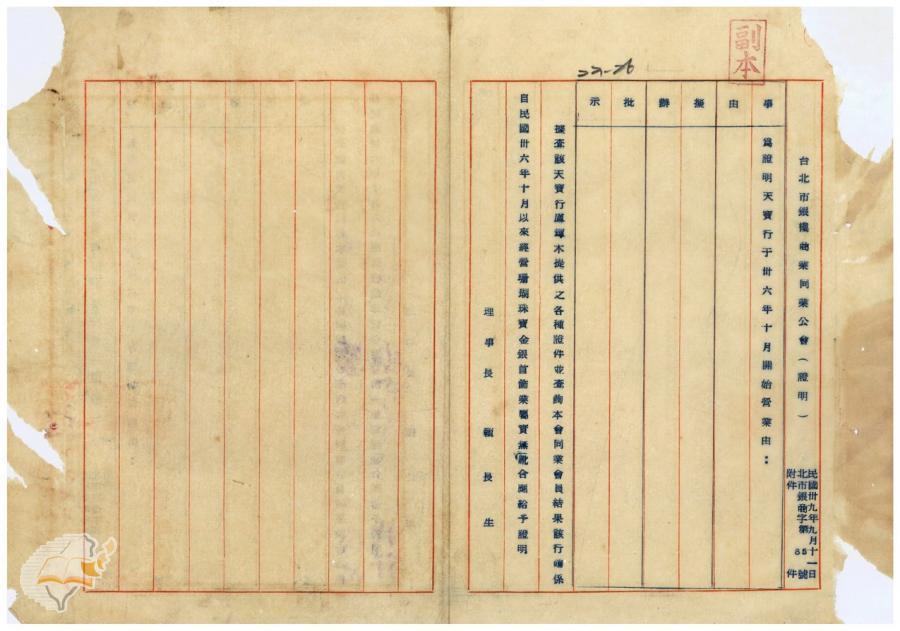 副本
22-26
台北市銀樓商業同業公會(證明)
民國卅九年九月十一日
北市銀商字第 65 號
附件 8 件
事由擬辦批示
為證明天寶行于卅六年十月開始營業由:
據查該天寶行木提供之各種證件並查詢本會同業會員結果該行確係
自民國卅六年十月以來經營珊瑚珠寶金銀首飾業屬實無訛合應給予證明
理事長 長生